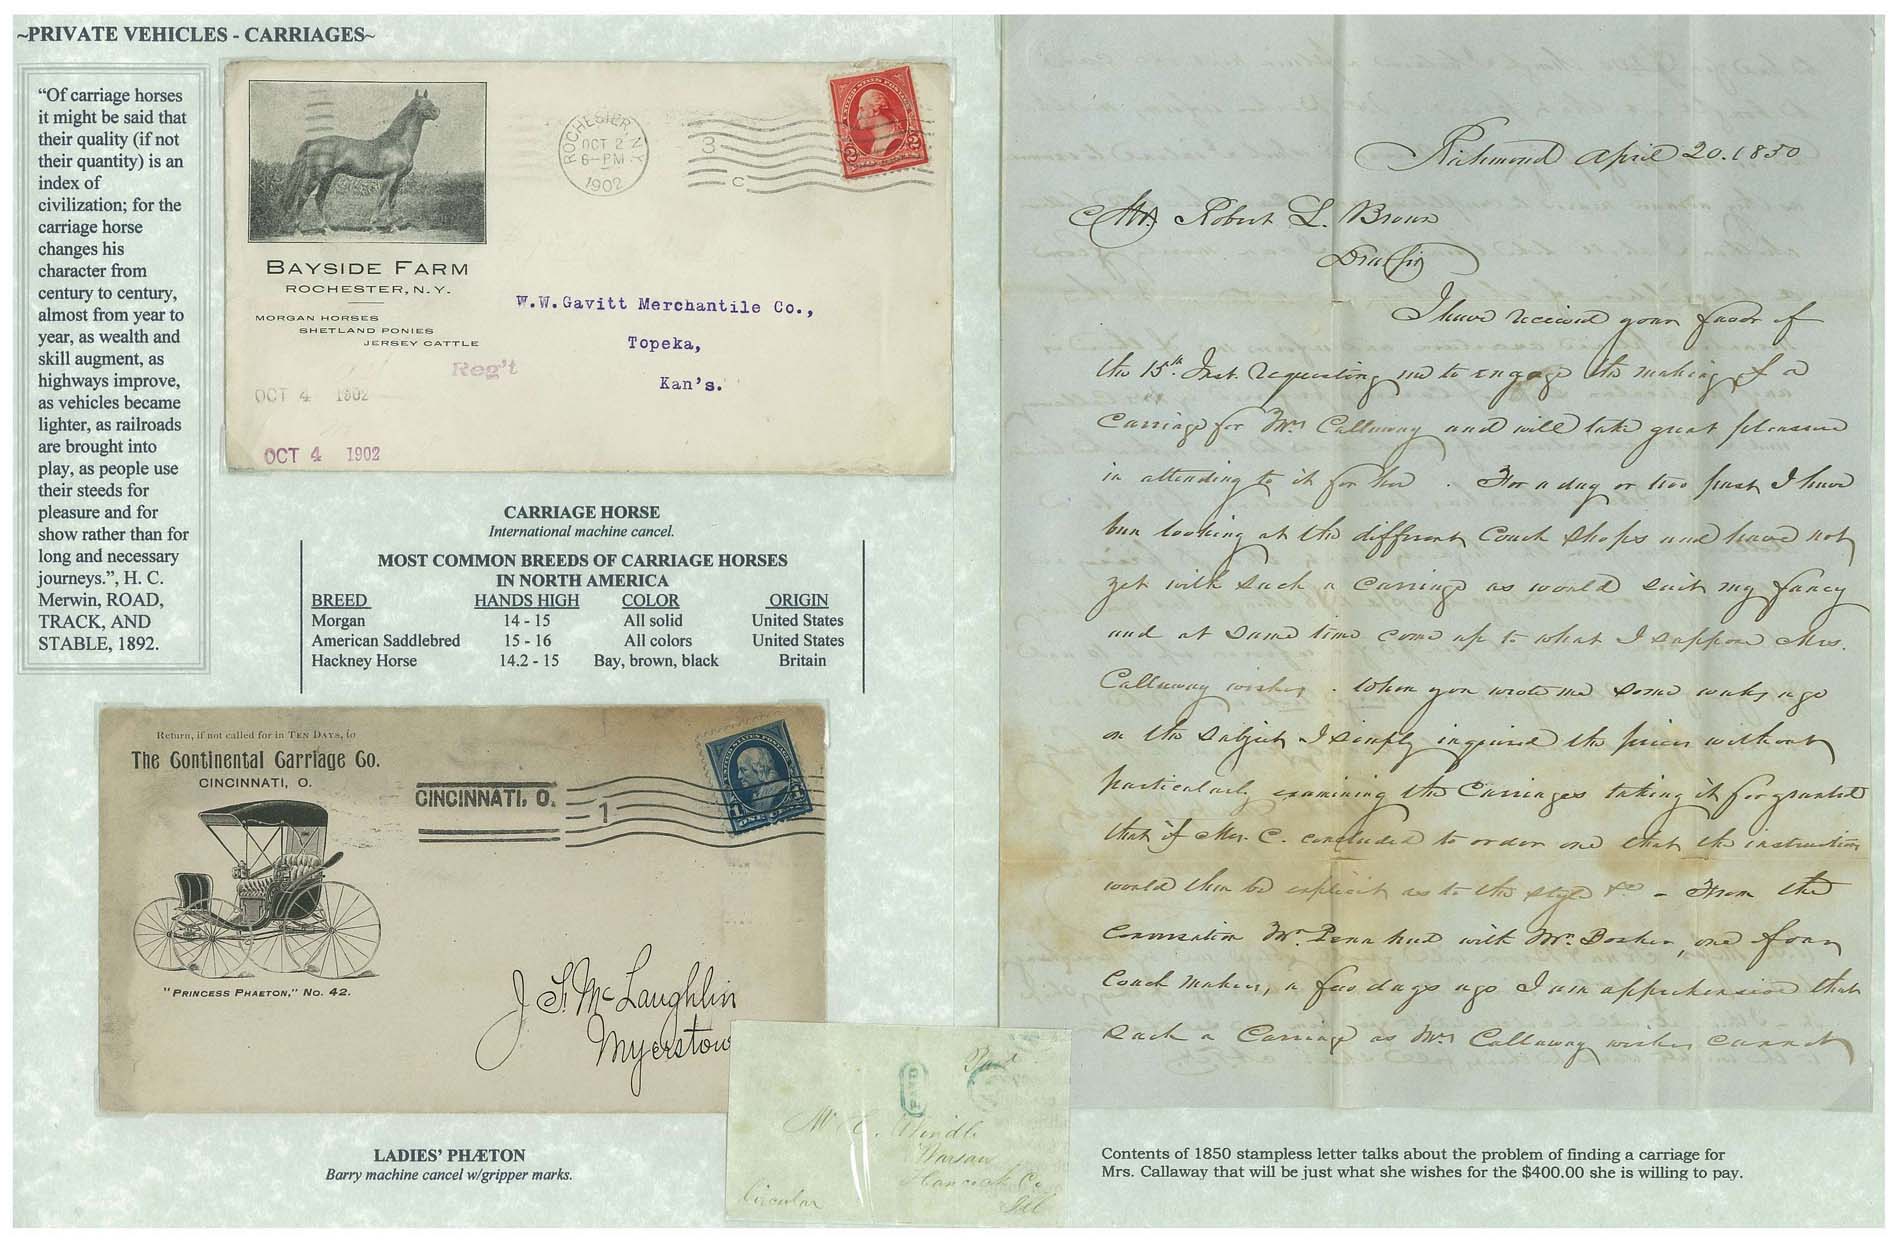 ~PRIVATE VEHICLES - CARRIAGES~
“Of carriage horses
it might be said that
their quality (if not
their quantity) is an
index of
civilization; for the
carriage horse
changes his
character from
century to century,
almost from year to
year, as wealth and
skill augment, as
highways improve,
as vehicles became
lighter, as railroads
are brought into
play, as people use
their steeds for
pleasure and for
show rather than for
long and necessary
journeys.”, H. C.
Merwin, ROAD,
TRACK, AND
STABLE, 1892.
BAYSIDE FARM
ROCHESTER, N.Y.
MORGAN HORSES
SHETLAND PONIES
JERSEY CATTLE
ROCHESTER, N.Y.
OCT 2
6-PM
1902
3
C
UNITED STATES POSTAGE
2 2
W.W.Gavitt Merchantile Co.,
Topeka,
Kan's.
Reg't
OCT 4 1902
OCT 4 1902
CARRIAGE HORSE
International machine cancel.
MOST COMMON BREEDS OF CARRIAGE HORSES
IN NORTH AMERICA
BREED HANDS HIGH COLOR ORIGIN
Morgan 14 - 15 All solid United States
American Saddlebred 15 - 16 All colors United States
Hackney Horse 14.2 - 15 Bay, brown, black Britain
Return, if not called for in TEN DAYS, to
The Continental Carriage Co.
CINCINNATI, O.
"PRINCESS PHAETON," No. 42.
CINCINNATI, O.
1
UNITED STATES POSTAGE
1 1
ONE
J. F. McLaughlin
Myerstow
LADIES' PHÆTON
Barry machine cancel w/gripper marks.
Paid
PAID
Mr C. Windle
Warsaw
Hancock Co
Ill
Circular
Richmond April 20. 1850
Mr. Robert L. Brown
Dear Sir
I have received your favor of
the 15th. Inst. requesting me to engage the making of a
Carriage for Mrs Callaway and will take great pleasure
in attending to it for her. For a day or two past I have
been looking at the different Coach Shops and have not
yet with such a Carriage as would suit my fancy
and at same time come up to what I suppose Mrs.
Callaway wishes. When you wrote me some weeks ago
on the subject I simply inquired the prices without
particularly examining the Carriages taking it for granted
that if Mrs. C. concluded to order one that the instructions
would then be explicit as to the style &c - From the
Conversation Mr. Penn had with Mr. Bosher, one of our
Coach makers, a few days ago I am apprehensive that
such a Carriage as Mrs Callaway wishes cannot
Contents of 1850 stampless letter talks about the problem of finding a carriage for
Mrs. Callaway that will be just what she wishes for the $400.00 she is willing to pay.